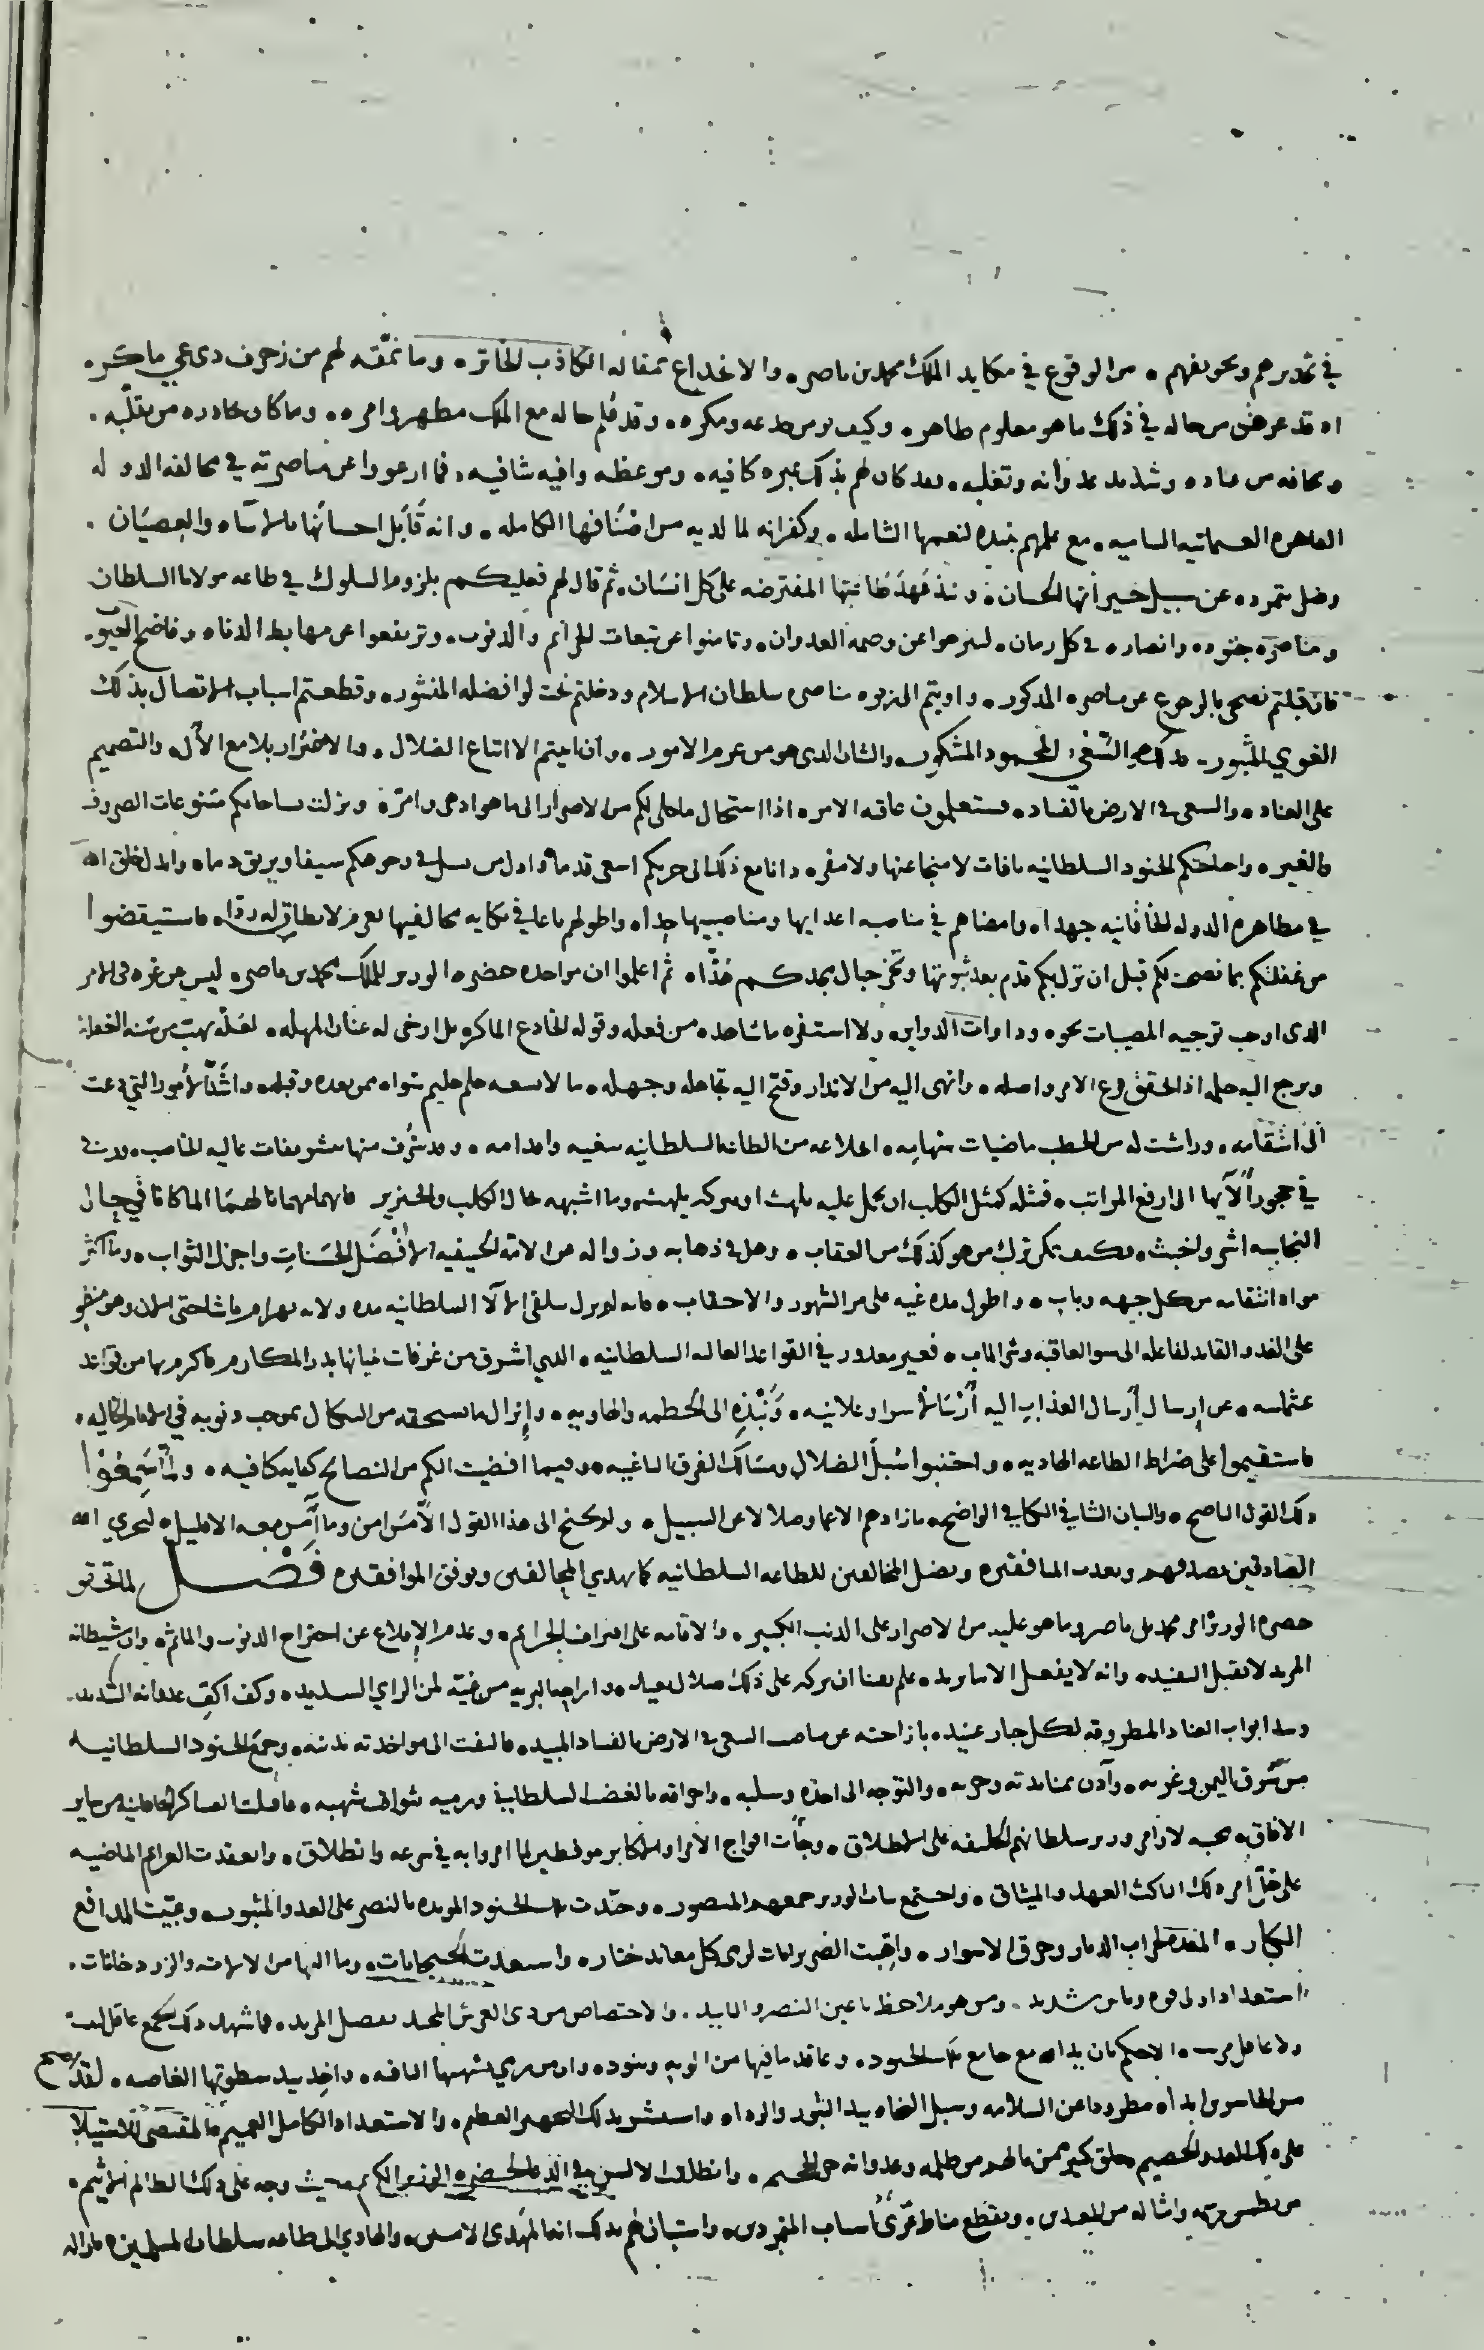 في تحذيرهم وتخويفهم من الوقوع في مكايد الملك محمد بن ناصر والانخداع بمقاله الكاذب الخاتر وما نمقه لهم من زخرف دى عي ماكر
اد قد عرفتم من حاله في ذلك ما هو معلوم ظاهر وكيف من خدعه ومكره وقد علم حاله مع الملك مطهر وامره وما كان يحادره من تقلبه
ويخافه من عناده وشديد عدوانه وتغلبه فقد كان لهم بذلك عبره كافيه وموعظه وافيه شافيه فما ارعووا عن مناصرته في مخالفه الدوله
القاهره العثمانيه الساميه مع علمهم بنبذه لنعمها الشامله وكفرانه لما لديه من اصنافها الكامله وانه قابل احسانها بالاساه والعصيان
وضل بتمرده عن سبيل خيراتها الحسان ونبذ عهد طاعتها المفترضه على كل انسان ثم قال لهم فعليكم بلزوم السلوك في طاعه مولانا السلطان
ومناصره جنوده وانصاره في كل زمان لتبرحوا عن وصمه العدوان وتامنوا عن تبعات الجرائم والذنوب وترتفعوا عن مهابط الدناه وفاضح العيوب
فان قبلتم نصحى بالرجوع عن مناصره المذكور واويتم الى بر مناصر سلطان الاسلام ودخلتم تحت لوا فضله المنشور وقطعتم اسباب الاتصال بذلك
الغوي المثبور فذلك هو السعي المحمود المشكور والشان الدى هو من عزم الامور وان ابيتم الا اتباع الضلال والاغترار بلامع الآل والتصميم
على العناد والسعى في الارض بالفساد فستعلمون عاقبه الامر اذا استحال ما حلى لكم من الاصرار الى ما هو ادهى وامر ونزلت بساحاتكم متنوعات الصروف
والغير واحاطتكم الجنود السلطانيه بافات لا منجا عنها ولا مفر وانا مع ذلك الى حربكم اسعى قدما واول من يسل في وجوهكم سيفا ويريق دما والد لخلق الله
في مظاهره الدوله الخاقانيه جهدا وامضاهم في مناصبه اعدائها ومناصبيها جدا واطولهم باعا في نكايه مخالفيها بعزم لا يطاق له ردا فاستيقضوا
من غفلتكم بما نصحت لكم قبل ان تزل بكم قدم بعد ثبوتها وتخر جبال مجدكم هدا ثم اعلموا ان مراحده حضره الوزير للملك محمد بن ناصر ليس عن غره في الامر
الدى اوجب توجيه المصيبات نحوه ودايرات الدواير ولا استفزه ما شاهده من فعله وقوله الخادع الماكر بل ارخى له عنان المهله لعله يهب من سنه الغفله
ويرجع اليه حلمه اذا تحقق فرع الامر واصله وانهى اليه من الانذار وقبح اليه تجاهله وجهله ما لا يسعه حلم حليم سواه ممن بعده وقبله واشد الامور التي دعت
الى انتقامه وراشت له من الخطب ماضيات سهامه اخلاعه من الطاعه السلطانيه سعيه واقدامه وقد شرف منها بتشريفات عاليه المناصب ورقى
في حجور آلايها الى ارفع المراتب فمثله كمثل الكلب ان تحمل عليه يلهث او تتركه يلهث وما اشبهه حال الكلب والخنزير
النجاسه اشر واخبث فكيف يمكن ترك من هو كذلك من العقاب وهل في ذهابه وزواله عن الامه الحنيفيه الا افضل الحسنات واجزل الثواب وما اكثر
مراه انتقامه من كل جهه وباب واطول مده غيه على مر الشهور والاحقاب فانه لم يزل يتلقى الالا السلطانيه مده ولايه بهرام باشا حتى الان وهو منطو
على الغدر القائد لفاعله الى سو العاقبه وشر الماب فغير معذور في القواعد العاليه السلطانيه التي اشرق من غرفات مبانيها بدر المكارم فاكرم بها من قواعد
عثمانيه عن ارسال ارسال العذاب اليه اسرارا وعلانيه ونبذه الى الحطمه والهاويه وانزال ما يستحقه من النكال بموجب ذنوبه في الايام الخاليه
فاستقيموا على صراط الطاعه الهاديه واجتنبوا سبل الضلال ومسالك الفرق الباغيه وفيما افضيت اليكم من النصائح كفايه كافيه ولما سمعوا
ذلك القول الناصح والبيان الشافي الكافي الواضح ما زادهم الا عما وضلالا عن السبيل ولم يجنح الى هذا القول الا من امن وما آمن معه الا قليل ليجزي الله
الصادقين بصدقهم ويعذب المنافقين ويضل المخالفين للطاعه السلطانيه كما يهدي المحالفين ويوفق الموافقين فصل لما تحقق
حضره الوزير امر محمد بن ناصر وما هو عليه من الاصرار على الذنب الكبير والاقامه على اقتراف الجرائم وعدم الاقلاع عن اجتراح الذنوب والمآثم وان شيطانه
المريد لا يقبل التفنيد وانه لا يفعل الا ما يريد علم يقينا ان تركه على ذلك ضلال بعيد واراحه البريه من غيه لمن الراي السديد وكف اكف عدوانه الشديد
وسد ابواب العناد المطروقه لكل جبار عنيد بازاحته عن مناصب السعى في الارض بالفساد المبيد فالتفت الى مواخذته بذنبه وجمع الجنود السلطانيه
من شرق اليمن وغربه واذن بمنابذته وحربه والتوجه الى اخذه وسلبه واحراقه بالغضب السلطاني ورميه بثواقب شهبه فاقبلت العساكر الخاقانيه من ساير
الافاق مجيبه لاوامر وزير سلطانهم الخليفه على الاطلاق وجات افواج الامراء والاكابر موفضين لما امروا به في سرعه وانطلاق وانعقدت العزائم الماضيه
على حل امر ذلك الناكث العهد والميثاق واجتمع بباب الوزير جمعهم المنصور وحشدت الجنود المويده بالنصر على العدو المثبور وعبيت المدافع
الكبار المعده لخراب الديار وحرق الاسوار واهبت الضربزانات لرمى كل معاند ختار واستعدت الجبخانات وما اليها من الالات والزردخانات
استعداد اولى قوه وباس شديد ومن هو ملاحظ باعين النصر والتاييد والاختصاص من ذى العرش المجيد بفضل المريد فما شهد ذلك الجمع عاقل لبيب
ولا غافل مريب الا حكم بان يد الله مع جامع تلك الجنود وعاقد ما فيها من الويه وبنود وان من رمي بشهبها الثاقبه واخذ بيد سطوتها الغاصبه لقد اصبح
من الخاسرين ابدا مطرودا عن السلامه وسبل النجاه بيد الثبور والردا واستبشر بذلك التجهيز العظيم والاستعداد الكامل العميم المقتضى للاستيلا
على ذلك العدو الخصيم خلق كثير ممن نالهم من ظلمه وعدوانه حر الجحيم وانطلقت الالسن في الدعا لحضره الوزير الكريم حيث وجه على ذلك الظالم الاثيم
من يطمس وامثاله من المعتدين ويقطع مناط عرى اسباب المتمردين واستبان لهم بذلك انه المهدى الامين والهادي الى طاعه سلطان المسلمين